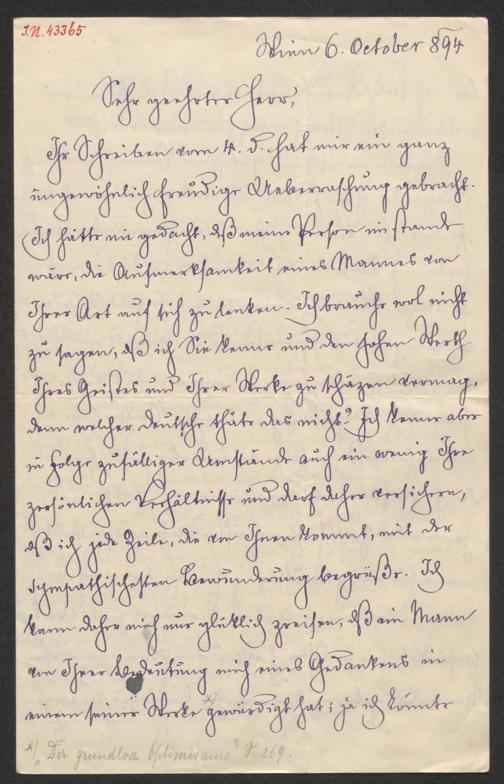 I.N. 43365
Wien 6. October 894
Sehr geehrter Herr,
Ihr Schreiben vom 4. d. hat mir ein ganz
ungewöhnlich freudige Ueberraschung gebracht.
Ich hätte nie gedacht, daß meine Person im stande
wäre, die Aufmerksamkeit eines Mannes von
Ihrer Art auf sich zu lenken. Ich brauche wol nicht
zu sagen, daß ich Sie kenne und den hohen Werth
Ihres Geistes und Ihrer Werke zu schäzen vermag,
denn welcher deutsche thäte das nicht? Ich kenne aber
in Folge zufälliger Umstände auch ein wenig Ihre
persönlichen Verhältnisse und darf daher versichern,
daß ich jede Zeile, die von Ihnen kommt, mit der
sympathischesten Bewunderung begrüße. Ich
kann daher mich nur glüklich preisen, daß ein Mann
von Ihrer Bedeutung mich eines Gedankens in
einem seiner Werke *) gewürdigt hat; ja ich konnte
*) „Der grundlose Optimismus" S. 269.